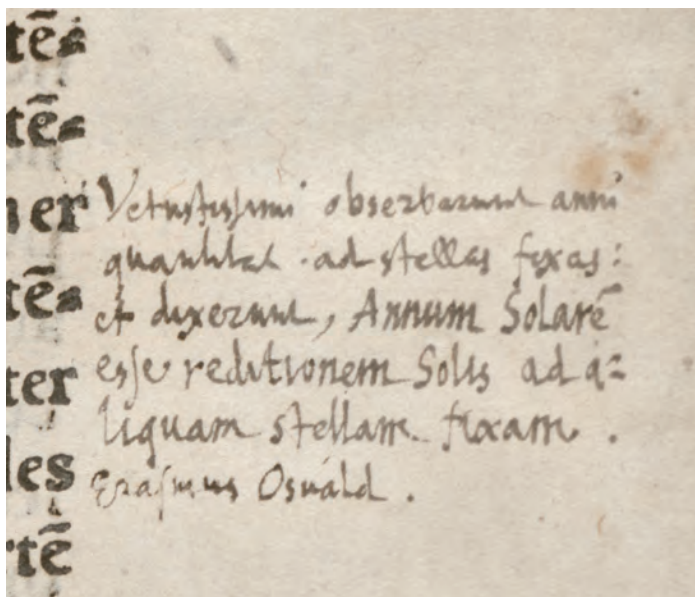 tē=
tē=
er
tē=
ter
les
tē
Vetustissimi observarunt anni
ad stellas fixas:
et dixerunt, Annum Solarē
esse reditionem Solis ad a=
liquam stellam fixam.
Erasmus Osuald.